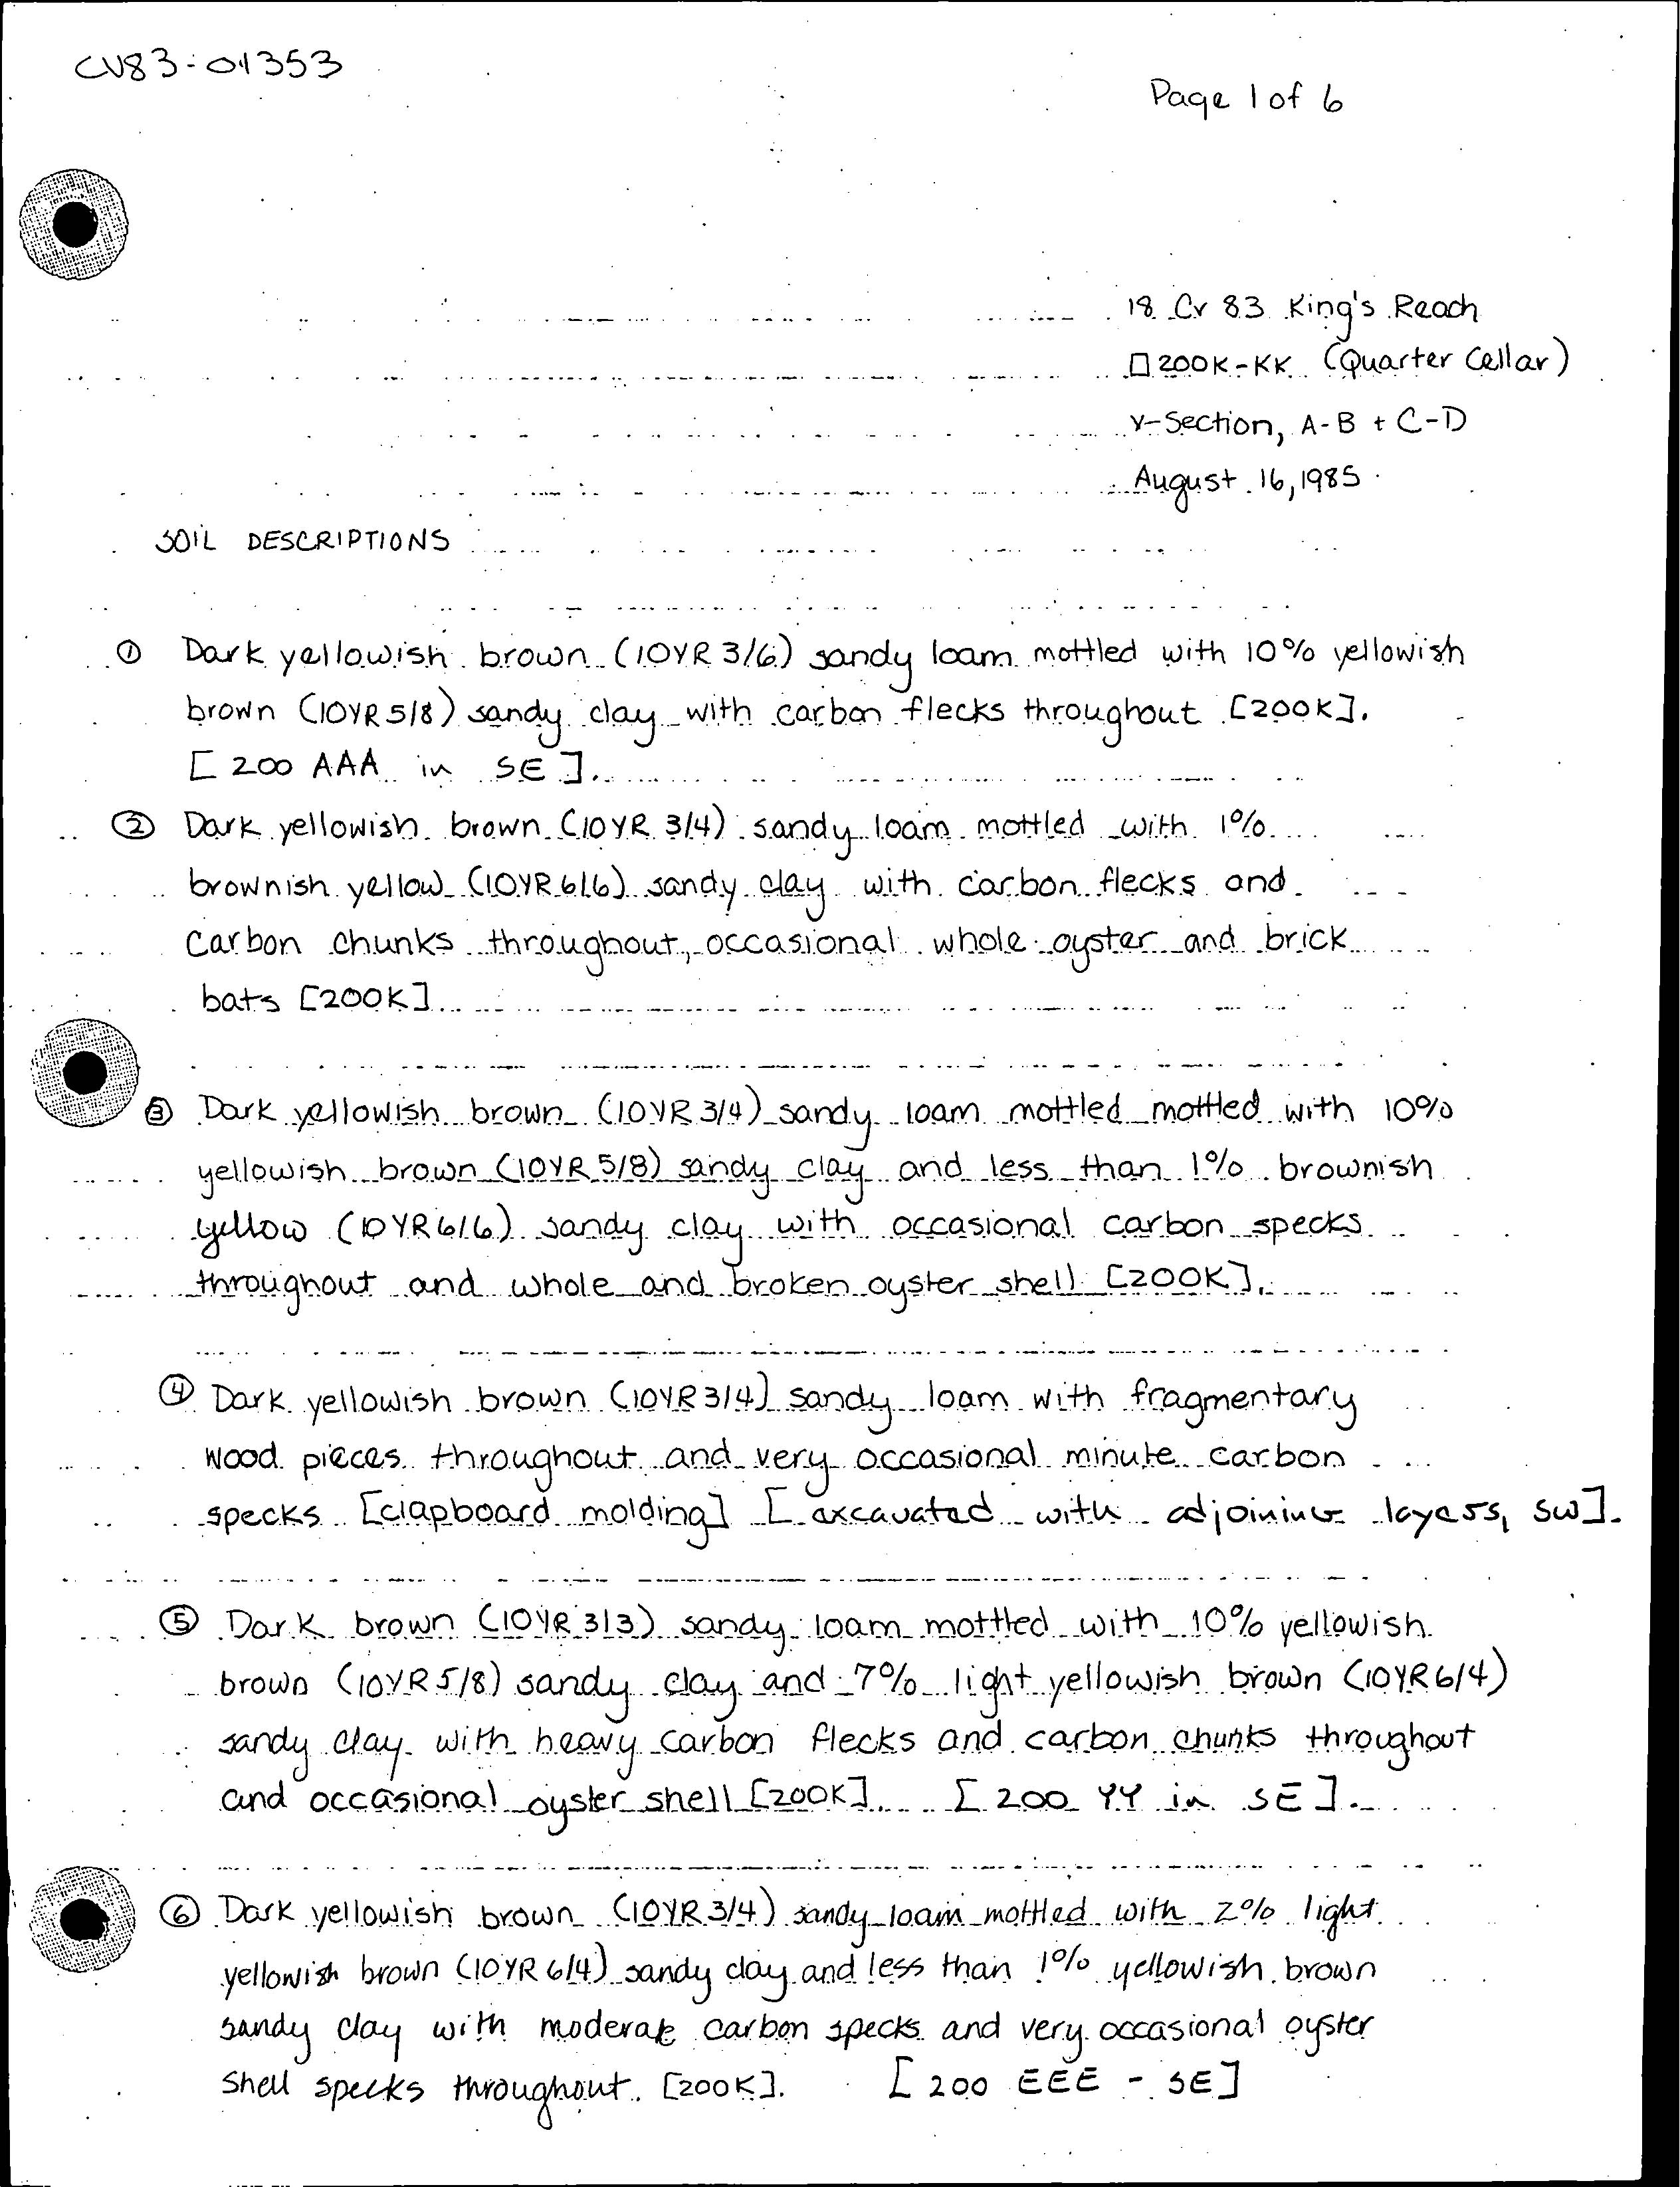 CV83-01353
Page 1 of 6
18 Cv 83 King's Reach
□ 200K-KK (Quarter Cellar)
X-Section, A-B + C-D
August 16, 1985
SOIL DESCRIPTIONS
① Dark yellowish brown (10YR 3/6) sandy loam mottled with 10% yellowish
brown (10YR 5/8) sandy clay with carbon flecks throughout [200K].
[200 AAA in SE].
② Dark yellowish brown (10YR 3/4) sandy loam mottled with 1%
brownish yellow (10YR 6/6) sandy clay with carbon flecks and
carbon chunks throughout, occasional whole oyster and brick
bats [200K]
③ Dark yellowish brown (10YR 3/4) sandy loam mottled mottled with 10%
yellowish brown (10YR 5/8) sandy clay and less than 1% brownish
yellow (10YR 6/6) sandy clay with occasional carbon specks
throughout and whole and broken oyster shell [200K].
④ Dark yellowish brown (10YR 3/4] sandy loam with fragmentary
wood pieces throughout and very occasional minute carbon
specks [clapboard molding] [excavated with adjoining layers, SW].
⑤ Dark brown (10YR 3/3) sandy loam mottled with 10% yellowish
brown (10YR 5/8) sandy clay and 7% light yellowish brown (10YR 6/4)
sandy clay with heavy carbon flecks and carbon chunks throughout
and occasional oyster shell [200K]. [200 YY in SE].
⑥ Dark yellowish brown (10YR 3/4) sandy loam mottled with 2% light
yellowish brown (10YR 6/4) sandy clay and less than 1% yellowish brown
sandy clay with moderate carbon specks and very occasional oyster
shell specks throughout. [200K]. [200 EEE - SE]